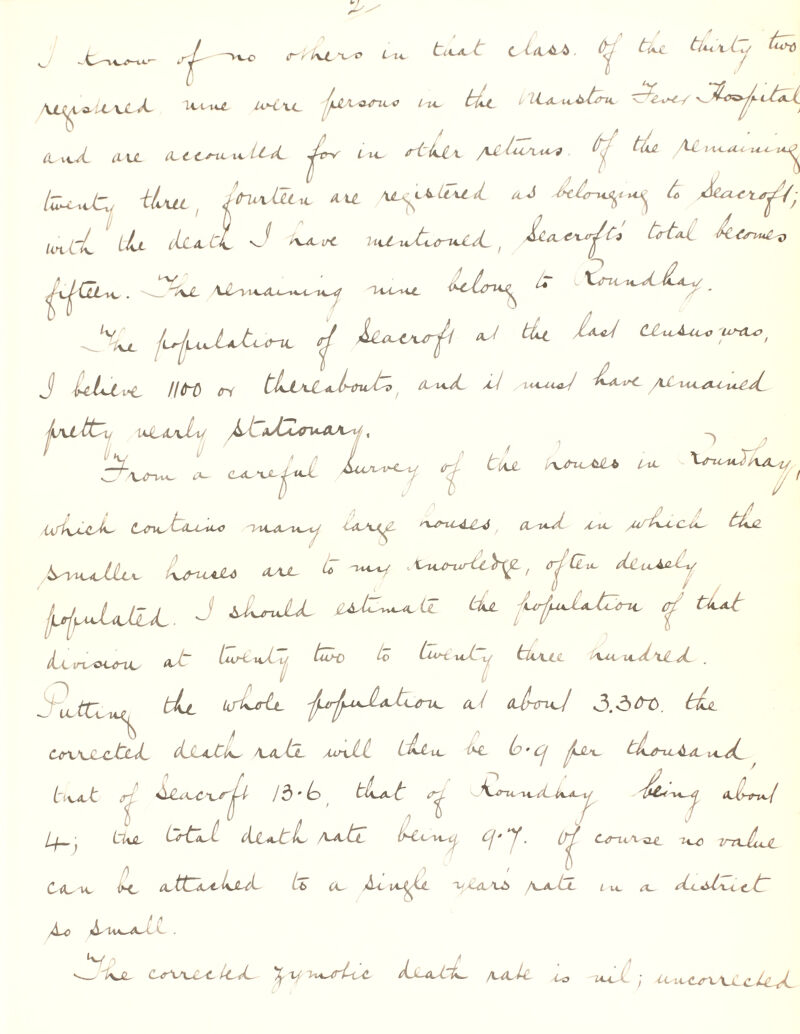 2
I know of no others in that class. Of the thirty two
registered nine were persons in the Manston Fever Hospital,
and are accounted for in other returns. Of the remaining
twenty three, fourteen are registered as belonging to Seacroft;
with the death I have mentioned, Seacroft's total becomes
fifteen. The remaining nine belong to Roundhay.
The population of Seacroft at the last census, was,
I believe 1100 or thereabouts, and it must have remained
pretty nearly stationary.
From a careful survey of the houses in Roundhay,
which contains many large houses, and in which the
smaller houses are to my knowledge, often densely
populated. I should estimate the population of that
division at twenty two to twenty three hundred.
Putting the whole population at about 3.300. the
corrected death rate will then be 6.9 per thousand,
that of Seacroft 13.6, that of Roundhay being about
4; the total death rate being 9.7. Of course no value
can be attached to a single year's rate in a district
so small.
The corrected zymotic death rate is nil; uncorrected